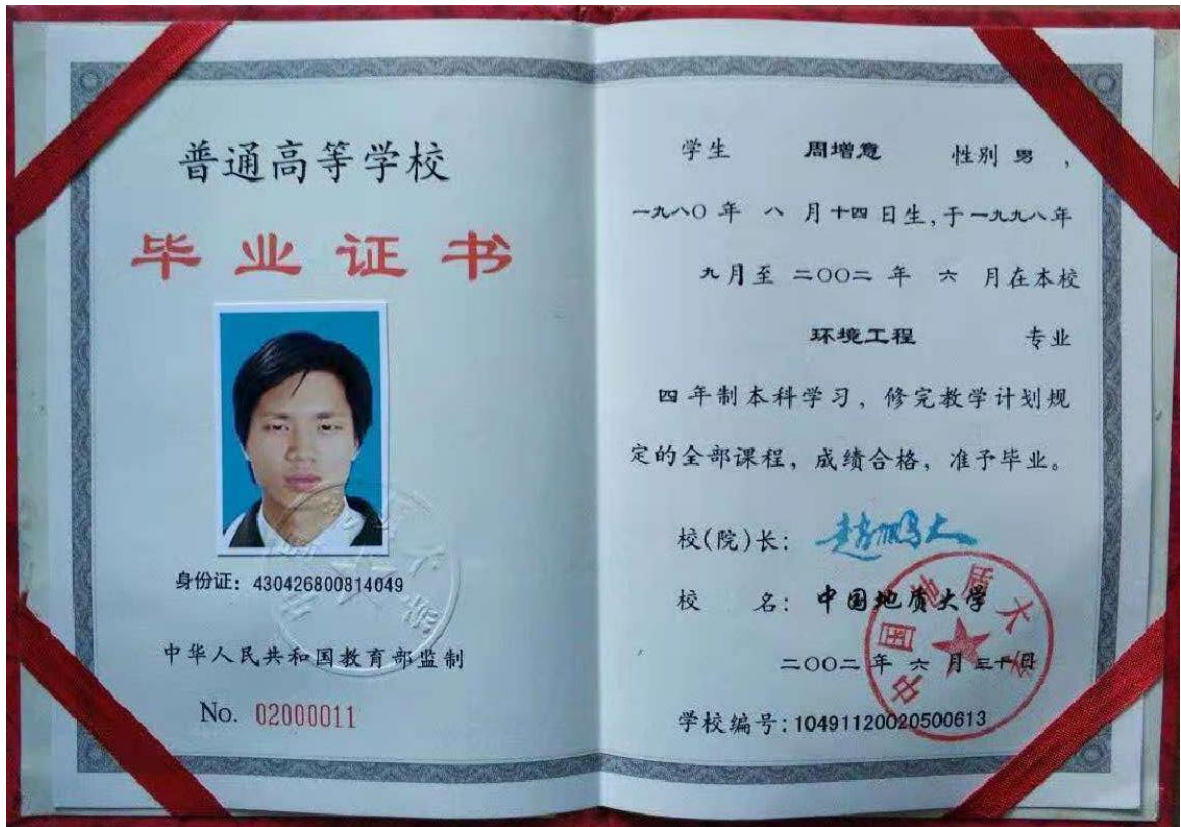 普通高等学校
毕业证书
身份证: 430426800814049
中华人民共和国教育部监制
No. 02000011
学生 周增意 性别 男,
一九八〇年 八 月十四日生,于一九九八年
九月至 二〇〇二 年 六 月在本校
环境工程 专业
四年制本科学习, 修完教学计划规
定的全部课程, 成绩合格, 准予毕业。
校(院)长: 赵鹏大
校 名: 中国地质大学
二〇〇二年 六 月三十日
学校编号:10491120020500613
中国地质大学